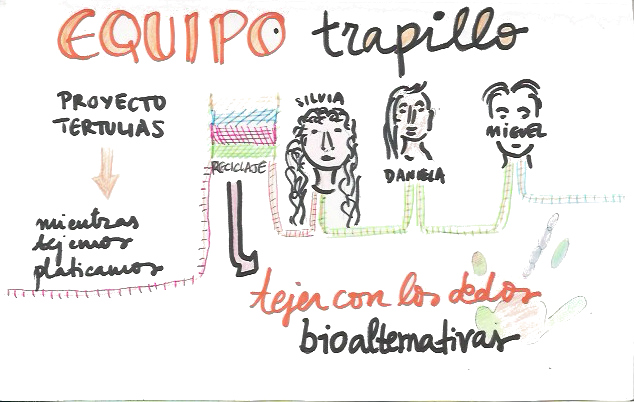 EQUIPO trapillo
PROYECTO
TERTULIAS
mientras
tejemos
platicamos
RECICLAJE
SILVIA
DANIELA
MIGUEL
tejer con los dedos
bioalternativas